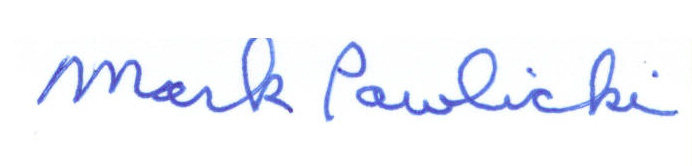 Mark Pawlicki